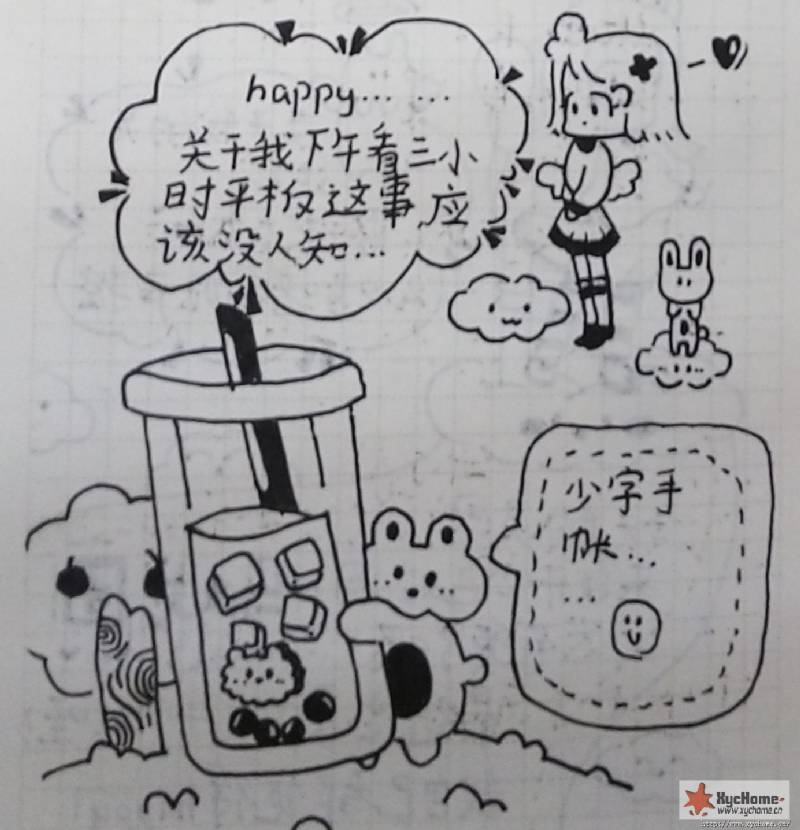 happy... ...
关于我下午看三小
时平板这事,应
该没人知...
少字手
帐...
...
XycHome
www.xychome.cn